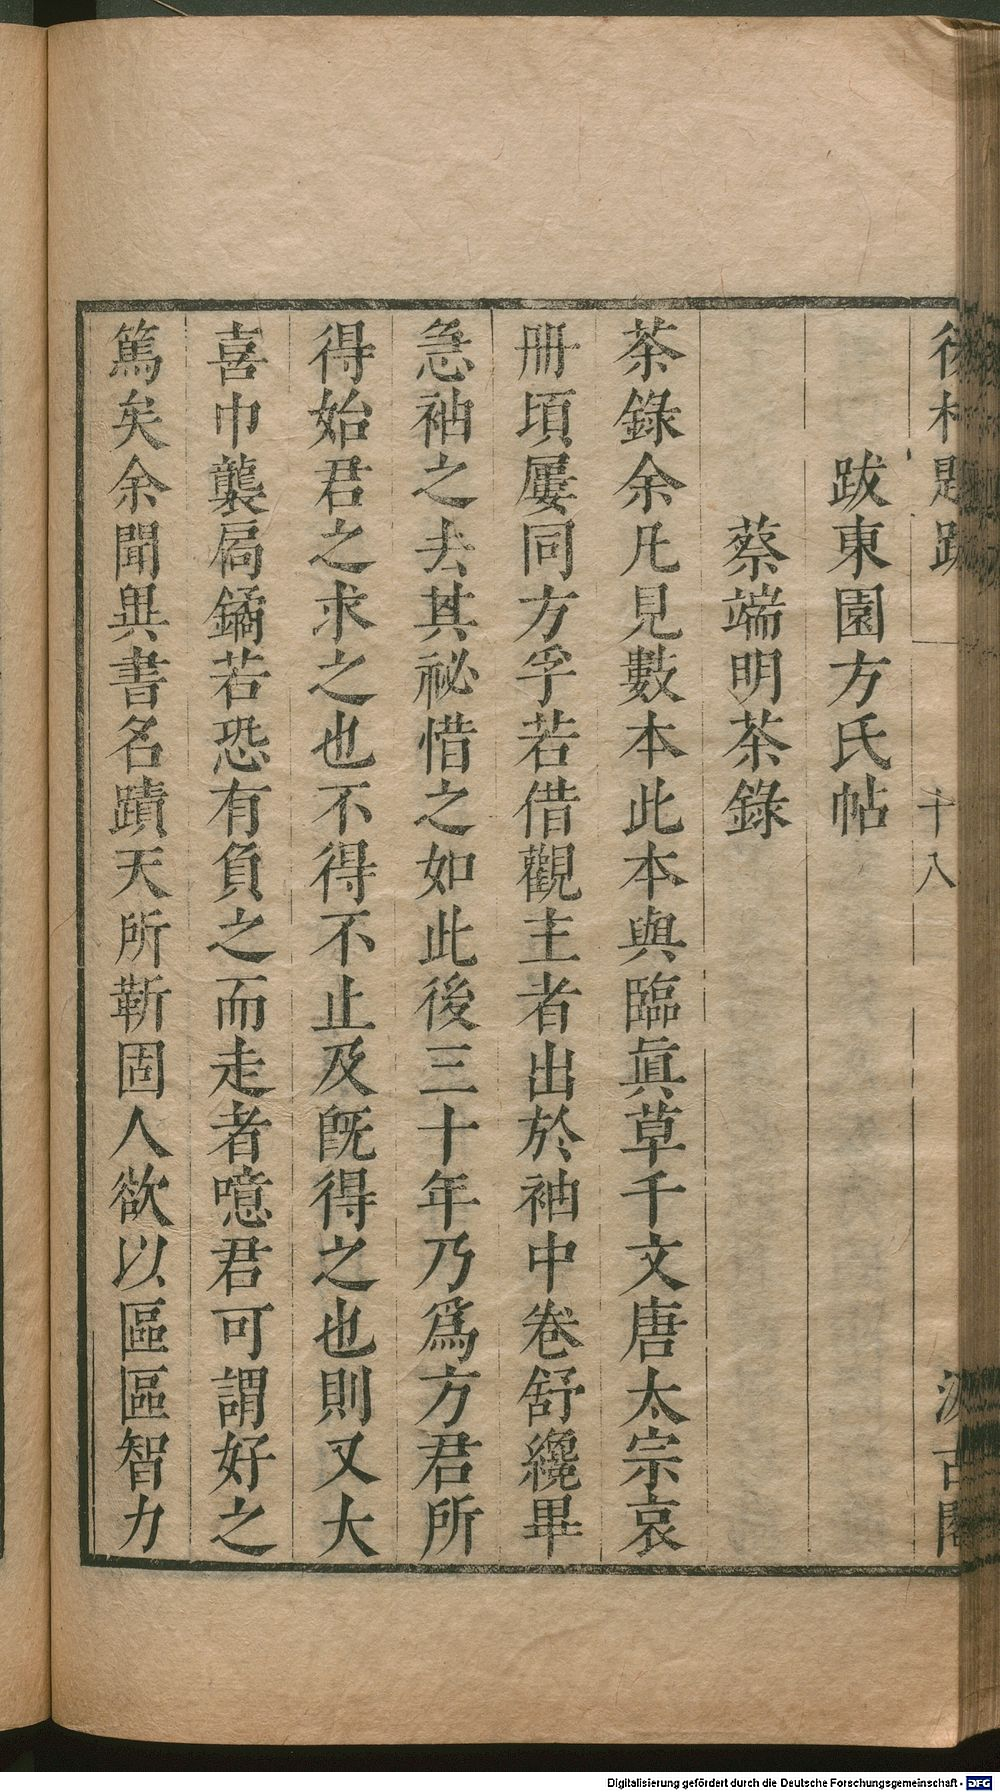 後村題跋 十八 汲古閣
跋東園方氏帖
蔡端明茶錄
茶錄余凡見數本此本與臨眞草千文唐太宗哀
册頃屢同方孚若借觀主者出於袖中卷舒纔畢
急袖之去其祕惜之如此後三十年乃爲方君所
得始君之求之也不得不止及旣得之也則又大
喜巾襲扃鐍若恐有負之而走者噫君可謂好之
篤矣余聞異書名蹟天所靳固人欲以區區智力
Digitalisierung gefördert durch die Deutsche Forschungsgemeinschaft - DFG